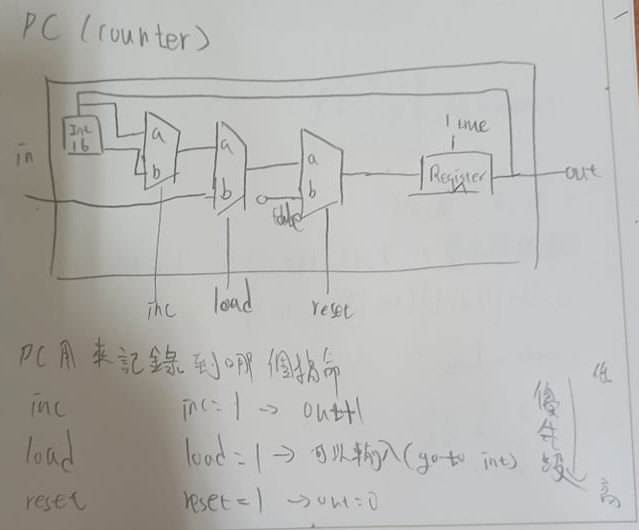 PC (counter)
Inc
16
a
b
a
b
a
b
in
false
true
Register
out
inc
load
reset
PC 用來記錄到哪個指命
inc inc=1 → out+1
load load=1 → 可以輸入(go to int)
reset reset=1 → out=0
低
優先級
高